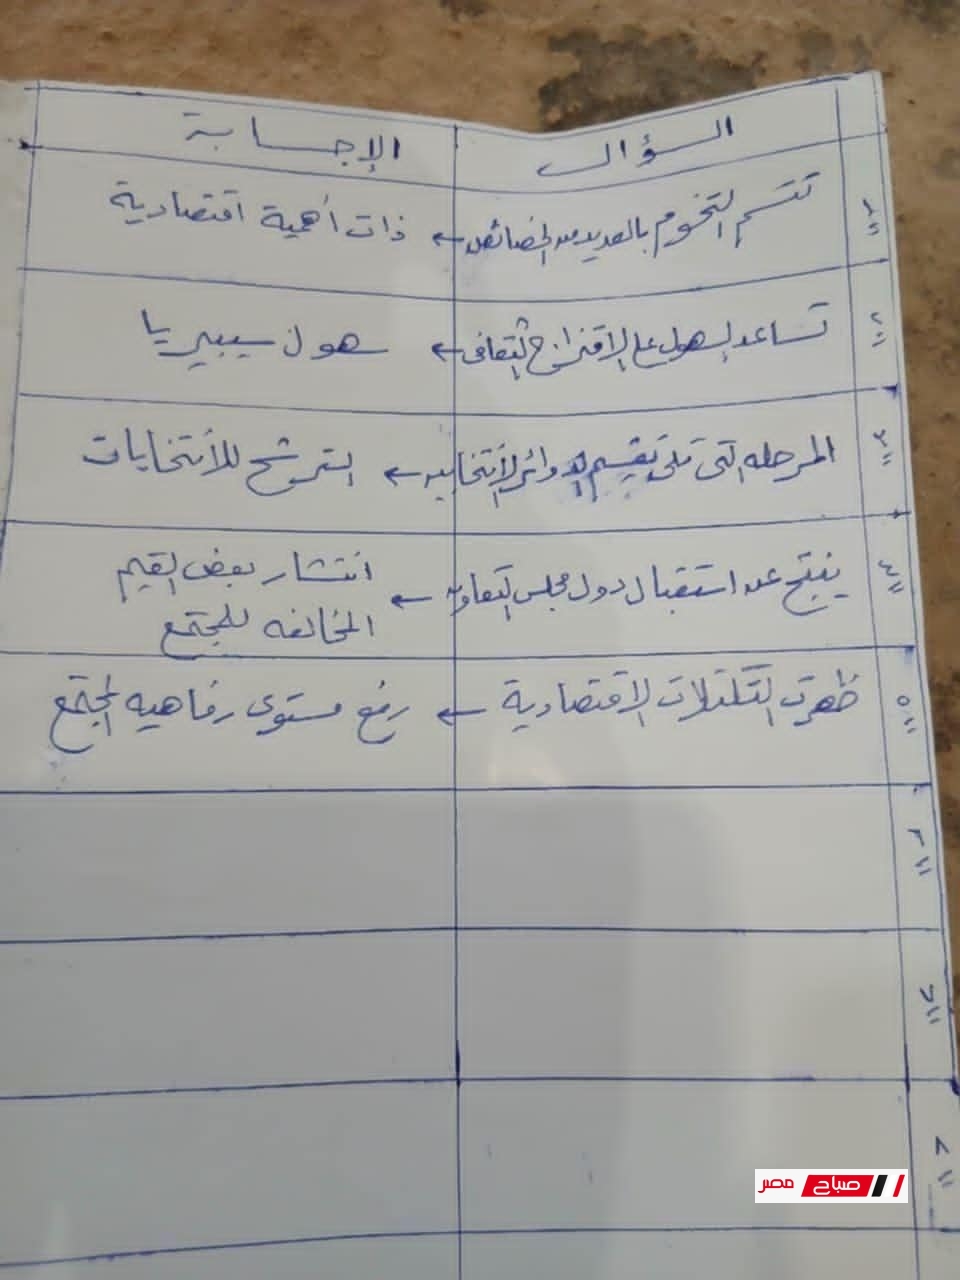 السؤال الإجابة
١" تتسم التخوم بالعديد من الخصائص ← ذات أهمية اقتصادية
٢" تساعد السهول على الاقتراض الثقافى ← سهول سيبيريا
٣" المرحله التى تلى تقسيم الدوائر الأنتخابيه ← الترشح للأنتخابات
٤" ينتج عن استقبال دول مجلس التعاون ← انتشار بعض القيم
المخالفه للمجتمع
٥" ظهرت التكتلات الاقتصادية ← رفع مستوى رفاهيه المجتمع
٦"
٧"
٨"
صباح مصر